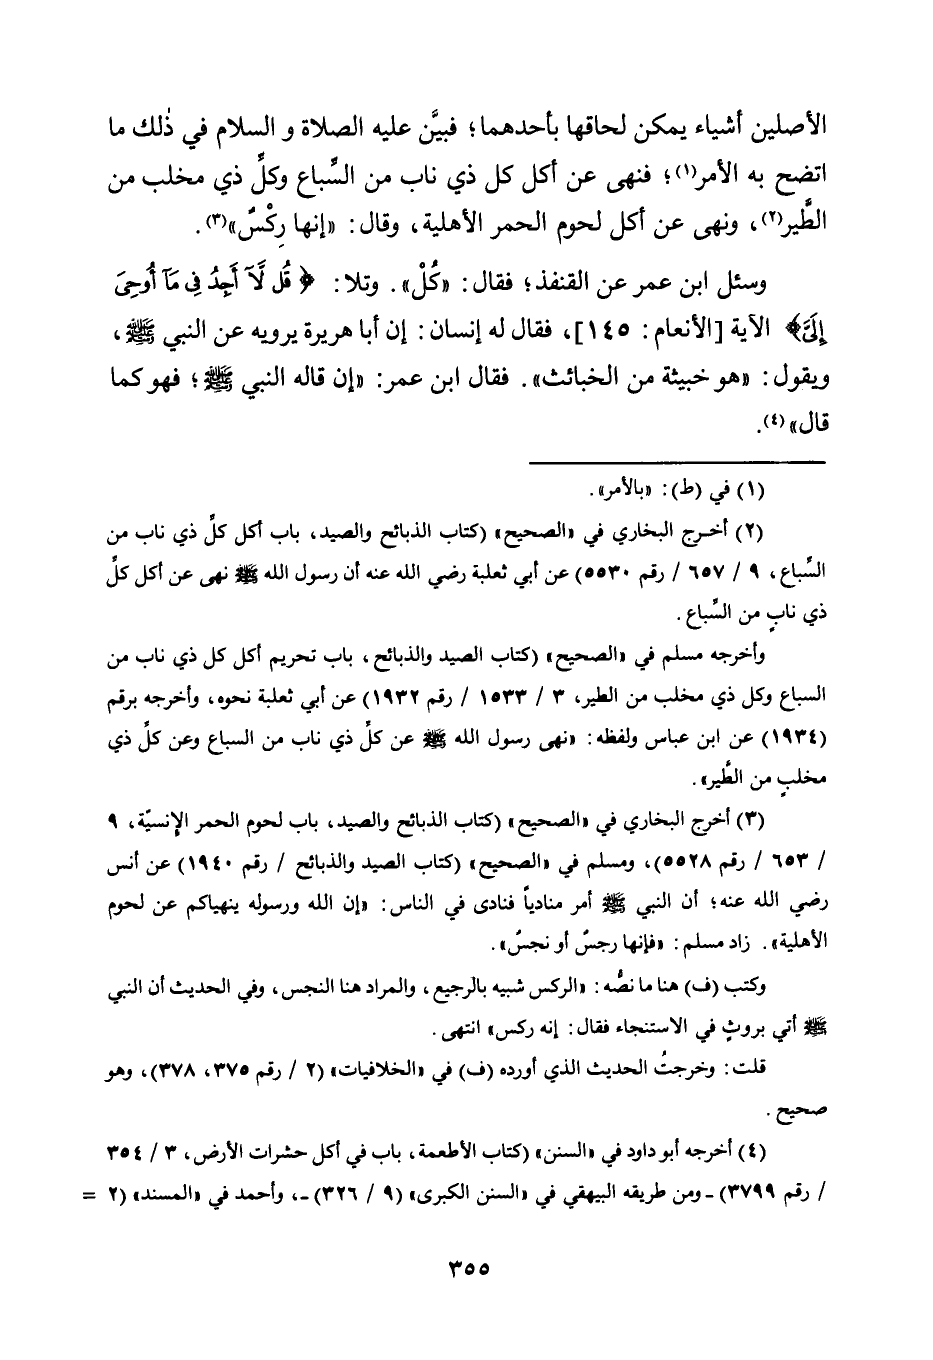 الأصلين أشياء يمكن لحاقها بأحدهما؛ فبيَّن عليه الصلاة و السلام في ذٰلك ما
اتضح به الأمر(١)؛ فنهى عن أكل كل ذي ناب من السِّباع وكلِّ ذي مخلب من
الطَّير(٢)، ونهى عن أكل لحوم الحمر الأهلية، وقال: «إنها رِكْسٌ»(٣).
وسئل ابن عمر عن القنفذ؛ فقال: «كُلْ». وتلا: ﴿قُل لَّآ أَجِدُ فِى مَآ أُوحِىَ
إِلَىَّ﴾ الآية [الأنعام: ١٤٥]، فقال له إنسان: إن أبا هريرة يرويه عن النبي ﷺ،
ويقول: «هو خبيثة من الخبائث». فقال ابن عمر: «إن قاله النبي ﷺ؛ فهو كما
قال»(٤).
(١) في (ط): «بالأمر».
(٢) أخرج البخاري في «الصحيح» (كتاب الذبائح والصيد، باب أكل كلِّ ذي ناب من
السِّباع، ٩ / ٦٥٧ / رقم ٥٥٣٠) عن أبي ثعلبة رضي الله عنه أن رسول الله ﷺ نهى عن أكل كلِّ
ذي نابٍ من السِّباع.
وأخرجه مسلم في «الصحيح» (كتاب الصيد والذبائح، باب تحريم أكل كل ذي ناب من
السباع وكل ذي مخلب من الطير، ٣ / ١٥٣٣ / رقم ١٩٣٢) عن أبي ثعلبة نحوه، وأخرجه برقم
(١٩٣٤) عن ابن عباس ولفظه: «نهى رسول الله ﷺ عن كلِّ ذي ناب من السباع وعن كلِّ ذي
مخلبٍ من الطَّير».
(٣) أخرج البخاري في «الصحيح» (كتاب الذبائح والصيد، باب لحوم الحمر الإنسيّة، ٩
/ ٦٥٣ / رقم ٥٥٢٨)، ومسلم في «الصحيح» (كتاب الصيد والذبائح / رقم ١٩٤٠) عن أنس
رضي الله عنه؛ أن النبي ﷺ أمر منادياً فنادى في الناس: «إن الله ورسوله ينهياكم عن لحوم
الأهلية». زاد مسلم: «فإنها رجسٌ أو نجسٌ».
وكتب (ف) هنا ما نصُّه: «الركس شبيه بالرجيع، والمراد هنا النجس، وفي الحديث أن النبي
ﷺ أتي بروثٍ في الاستنجاء فقال: إنه ركس» انتهى.
قلت: وخرجتُ الحديث الذي أورده (ف) في «الخلافيات» (٢ / رقم ٣٧٥، ٣٧٨)، وهو
صحيح.
(٤) أخرجه أبو داود في «السنن» (كتاب الأطعمة، باب في أكل حشرات الأرض، ٣ / ٣٥٤
/ رقم ٣٧٩٩) ـ ومن طريقه البيهقي في «السنن الكبرى» (٩ / ٣٢٦) ـ، وأحمد في «المسند» (٢ =
٣٥٥